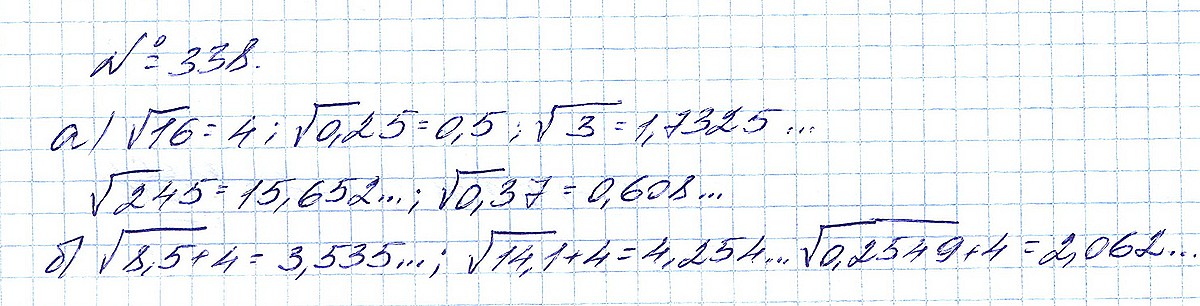 № 338.
а) √16 = 4; √0,25 = 0,5; √3 = 1,7325...
√245 = 15,652...; √0,37 = 0,608...
б) √8,5+4 = 3,535...; √14,1+4 = 4,254... √0,2549+4 = 2,062...